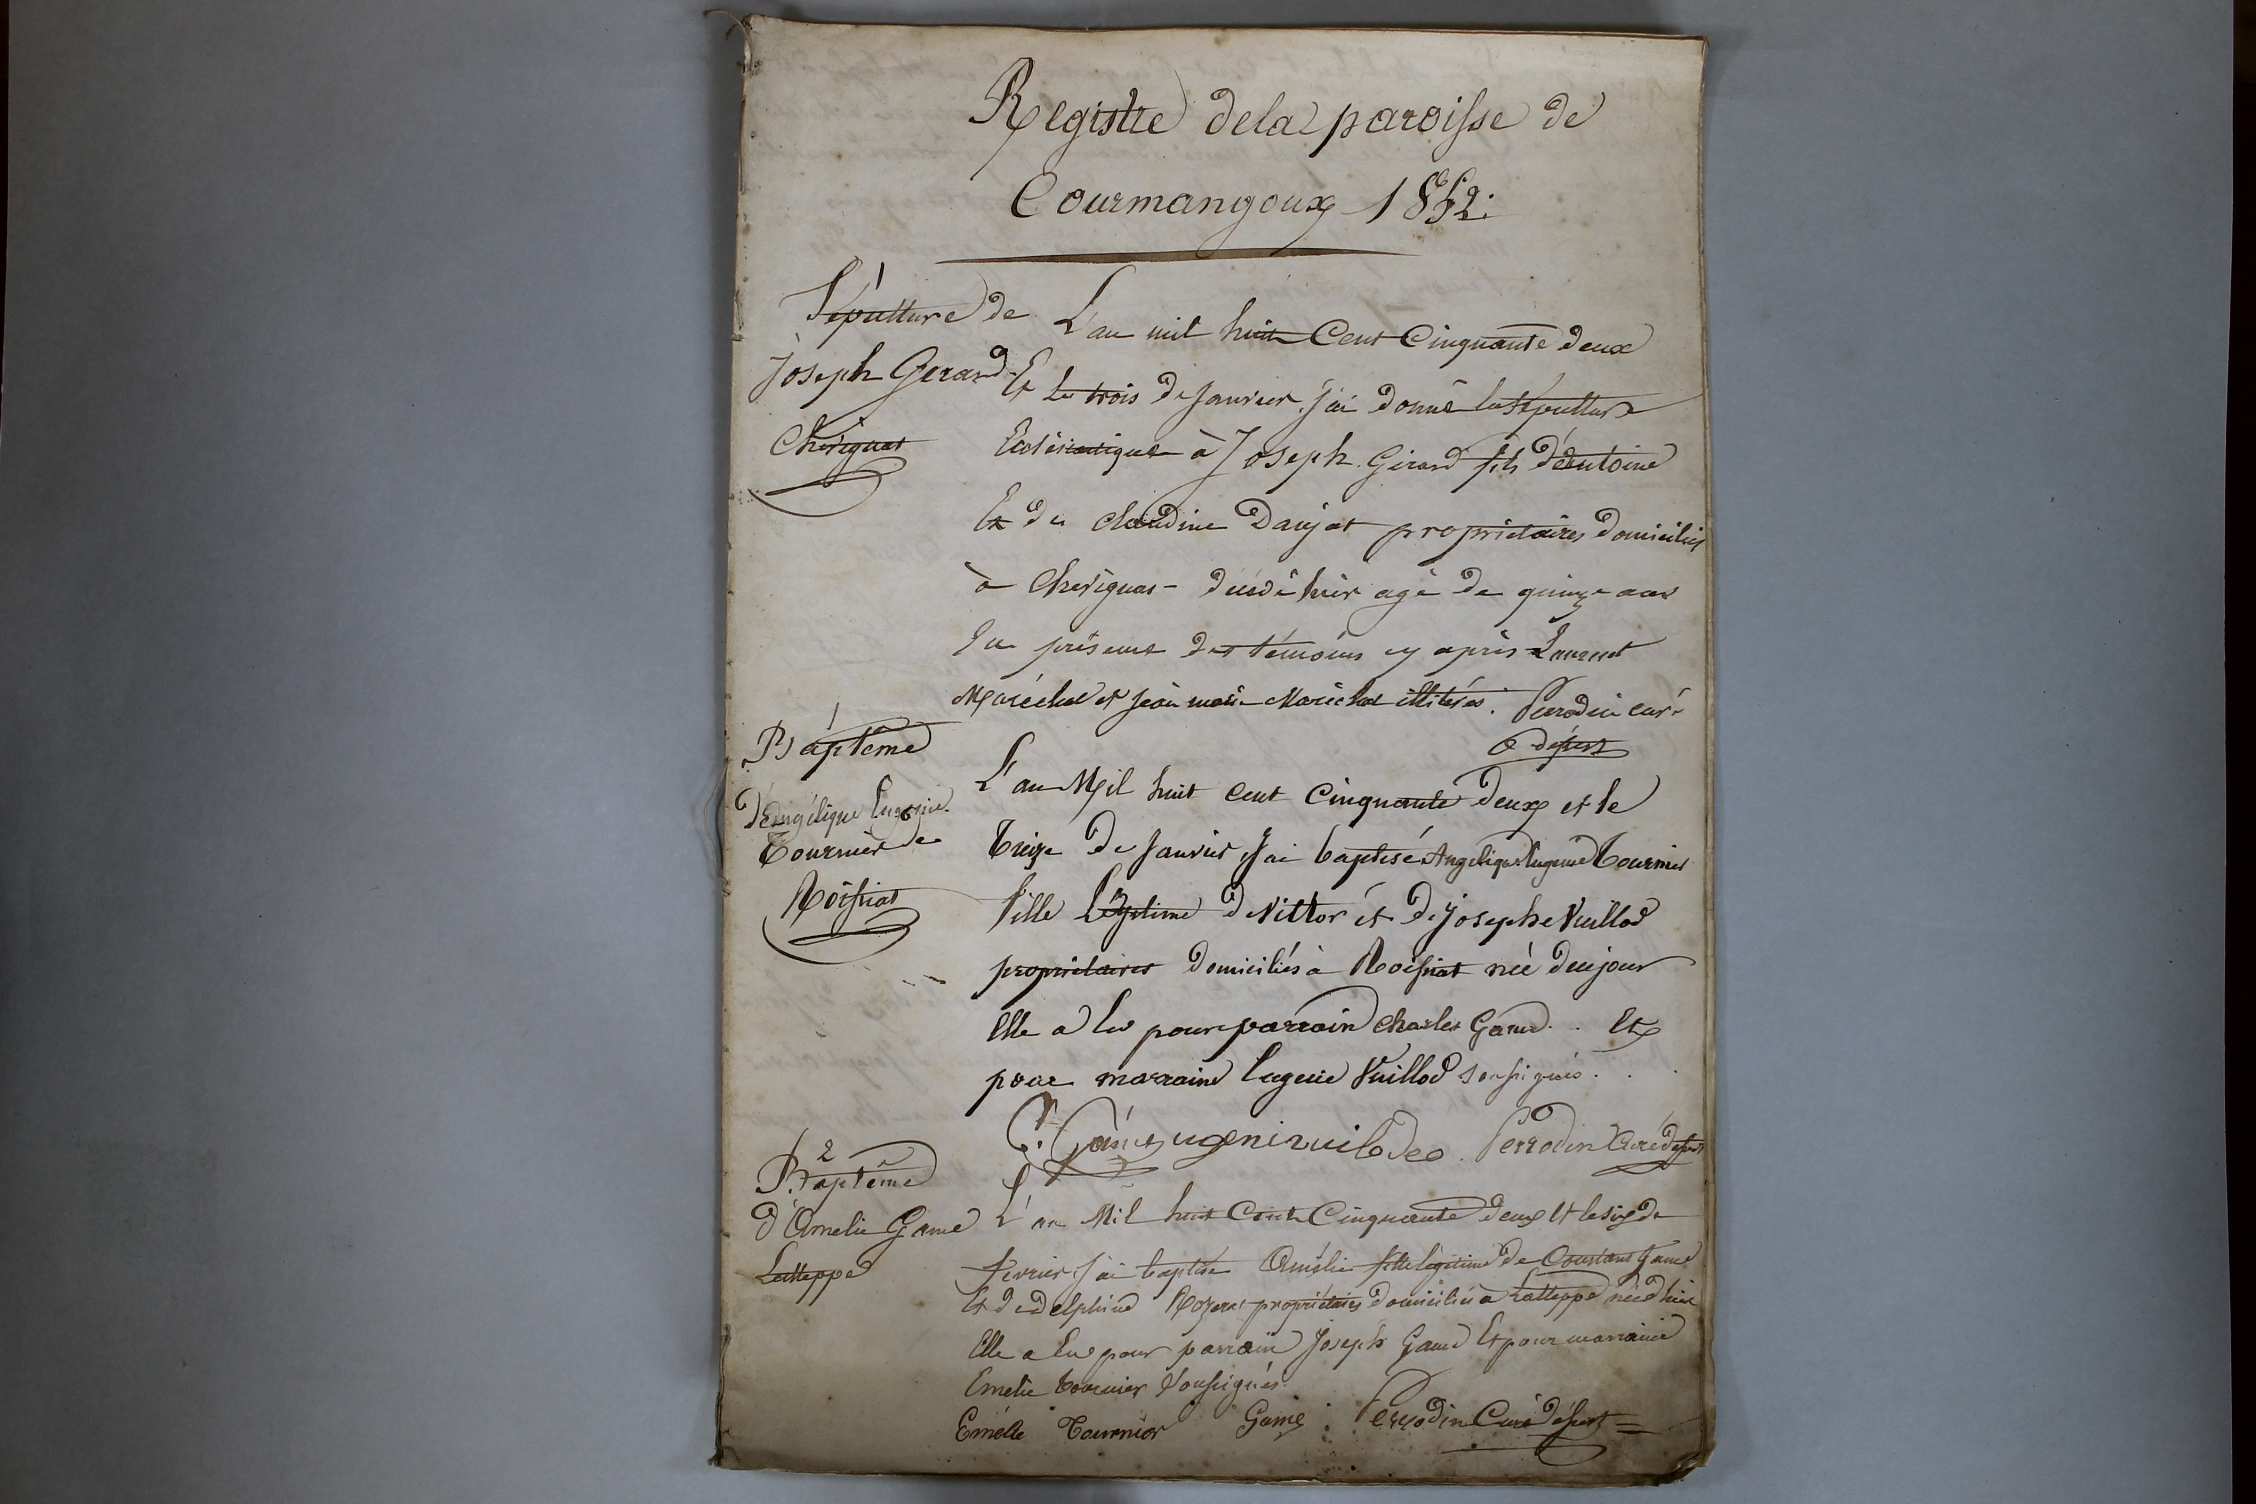 Registre de la paroisse de
Courmangoux 1852.
1
Sépulture de
Joseph Gerard
Chevignat
L'an mil huit Cent Cinquante deux
Et le trois de Janvier j'ai donné la Sépulture
Eclésiastique à Joseph Girard fils d'Antoine
Et de Claudine Daujat propriétaires domiciliés
à Chevignat décédé hier agé de quinze ans
En présence des témoins cy après Laurent
Maréchal et Jean marie Maréchal illitérés. Perrodin curé
desserv
1
Baptême
d'Angélique Eugenie
Tournier de
Roissiat
L'an Mil huit Cent Cinquante deux et le
Treize de Janvier j'ai baptisé Angelique Eugenie Tournier
fille Légitime de Victor et de Josephe Vuillod
propriétaires domiciliés à Roissiat née du jour
Elle a Eu pour parrain Charles Game Et
pour marraine Eugenie Vuillod soussignés.
C. Game eugeni vuilode Perrodin Curé desserv
2
Baptême
d'Amelie Game
Latteppe
L'an Mil huit Cent Cinquante deux Et le six de
Fevrier j'ai baptisé Amélie fille légitime de Constant Game
Et de Delphine propriétaires domiciliés à Latteppe née d'hier
Elle a Eu pour parrain Joseph Game Et pour marraine
Emelie Tournier Soussignés.
Emélie Tournier Game Perrodin Curé desservt